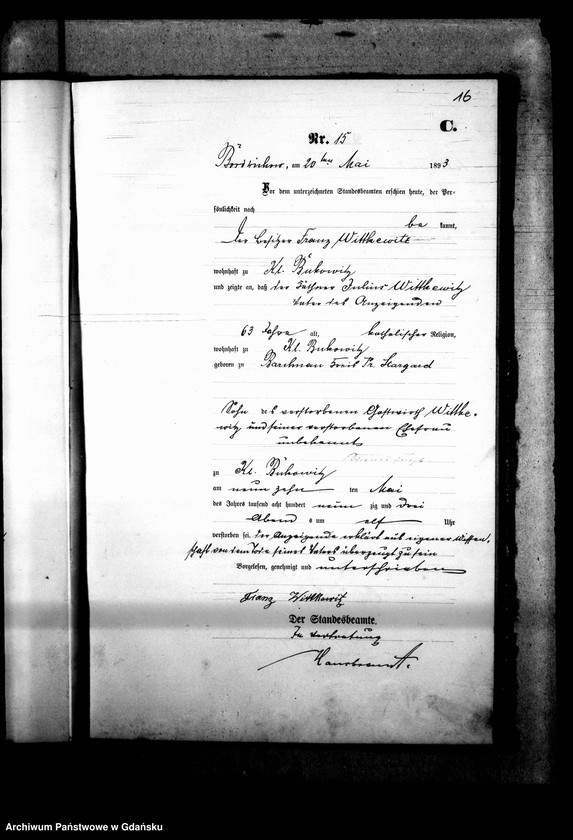 16
C.
Nr. 15
am 20 ten Mai 1893
Vor dem unterzeichneten Standesbeamten erschien heute, der Per-
sönlichkeit nach
be kannt,
der Besitzer Franz Wittkewitz
wohnhaft zu Kl. Bukowitz
und zeigte an, daß der Julius Wittkewitz
Vater des Anzeigenden
63 Jahre alt, katholischer Religion,
wohnhaft zu Kl. Bukowitz
geboren zu Kreis Pr. Stargard
Sohn des verstorbenen Gastwirth Wittke-
witz und seiner verstorbenen Ehefrau
unbekannt
zu Kl. Bukowitz
am neun zehn ten Mai
des Jahres tausend acht hundert neun zig und drei
Abend s um elf Uhr
verstorben sei. Der Anzeigende erklärt aus eigener Wissen-
schaft von dem Tode seines Vaters überzeugt zu sein
Vorgelesen, genehmigt und unterschrieben
Franz Wittkowitz
Der Standesbeamte.
In Vertretung
Archiwum Państwowe w Gdańsku